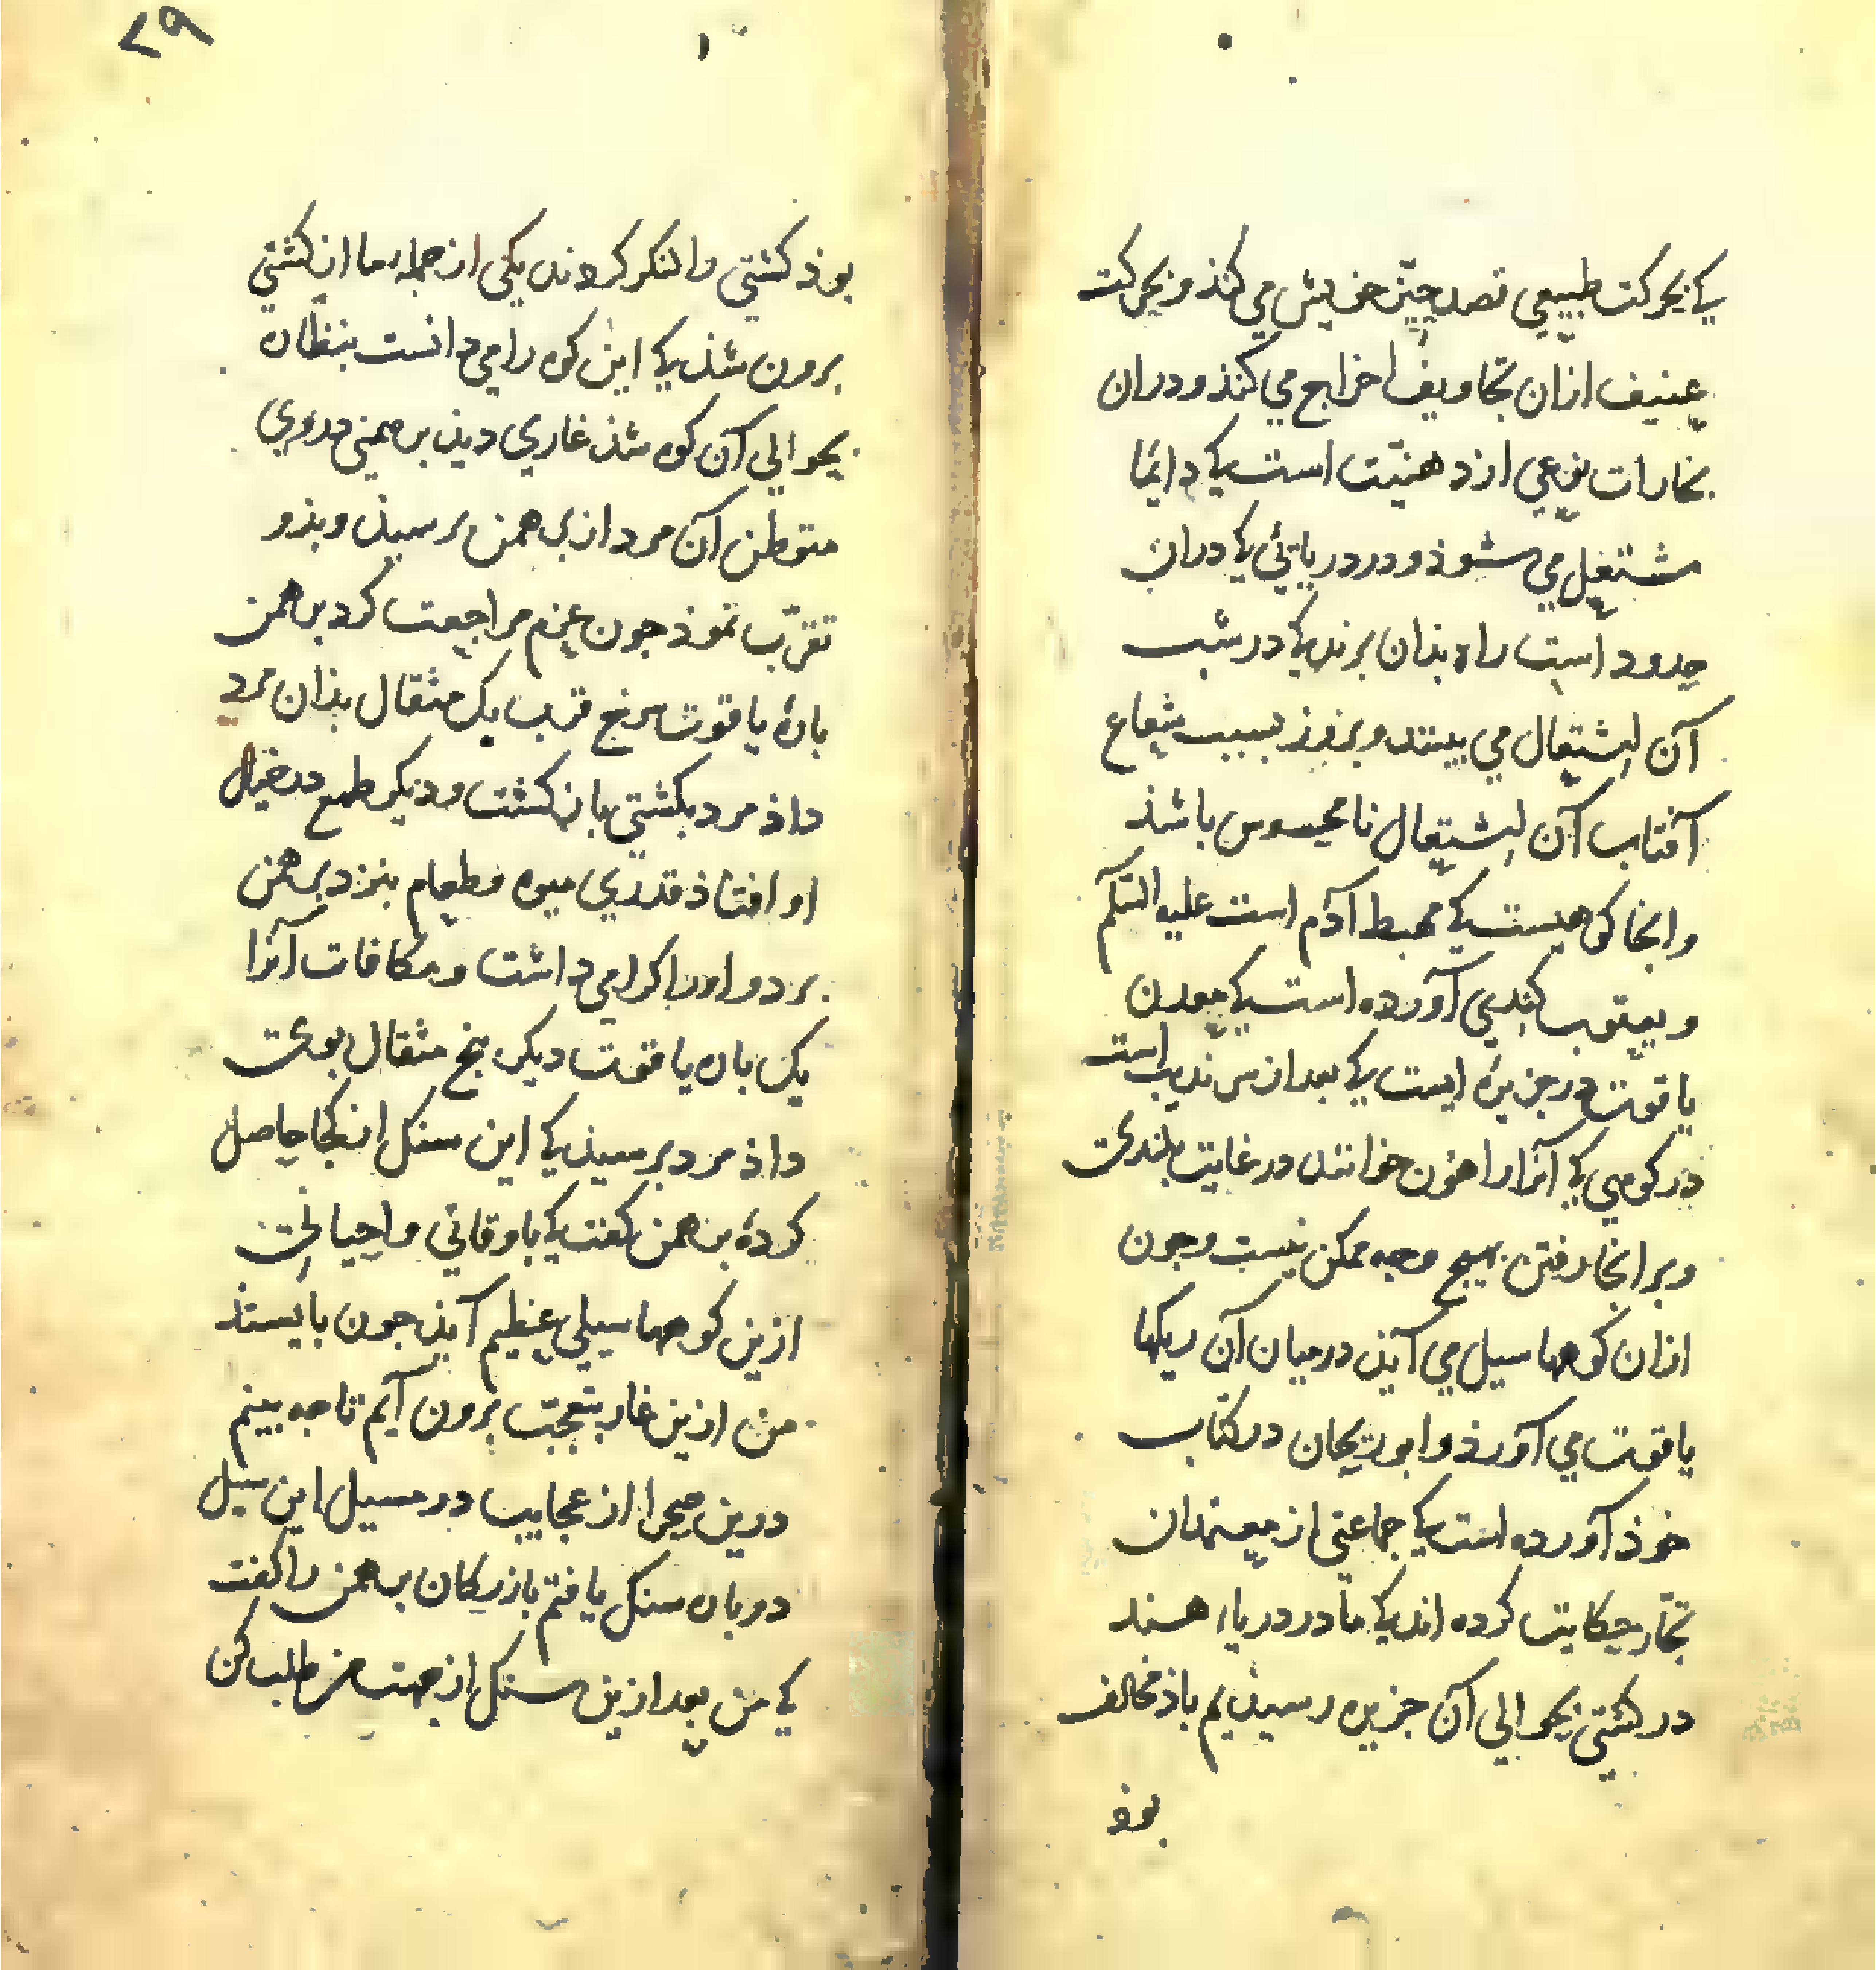 کی بحرکت طبیعی قصد حیّز خویش می کنذ و بحرکت
عنیف ازان تجاویف اخراج می کنذ و دران
بخارات نوعی از دهنیّت است کی دایما
مشتعل می شوذ و در دریائی کی دران
حدود است راه بذان برند کی در شب
آن اشتعال می بینند و بروز بسبب شعاع
آفتاب آن اشتعال نامحسوس باشذ
و انجا کوهیست کی مهبط آدم است علیه السلم
و یعقوب کندی آورده است کی معدن
یاقوت در جزیرهٔ ایست کی بعد از سرندیب است
در کوهی کی آنرا راهون خوانند در غایت بلندی
و بر انجا رفتن بهیچ وجه ممکن نیست و جون
ازان کوهها سیل می آیذ در میان آن ریکها
یاقوت می آورذ و ابوریحان در کتاب
خوذ آورده است کی جماعتی از معتمدان
تجّار حکایت کرده اند کی ما در دریاء هند
در کشتی بحوالی آن جزیره رسیذیم باذ مخالف
بوذ
۲۹
بوذ کشتی را لنکر کردند یکی از جمله ما از کشتی
برون شذ کی این کوه را می دانست بنظاره
بحوالی آن کوه شذ غاری دیذ برهمنی دروی
متوطن آن مرد از برهمن برسیذ و بذو
تقرّب نموذ جون عزم مراجعت کرد برهمن
بارهٔ یاقوت سرخ قرب یک مثقال بذان مرد
داذ مرد بکشتی باز کشت و دیکر طمع در خیال
او افتاذ قدری میوه و طعام بنزد برهمن
برد و او را کرامی داشت و مکافات آنرا
یک باره یاقوت دیکر بنج مثقال بوی
داذ مرد برسیذ کی این سنک از کجا حاصل
کردهٔ برهمن کفت کی باوقاتی و احیانی
ازین کوهها سیلی عظیم آیذ جون بایستذ
من ازین غار بتعجب برون آیم تا جه بینم
درین صحرا از عجایب در مسیل این سیل
دو باره سنک یافتم بازرکان برهمن را کفت
کی من بعد ازین سنک از جهت من طلب کن